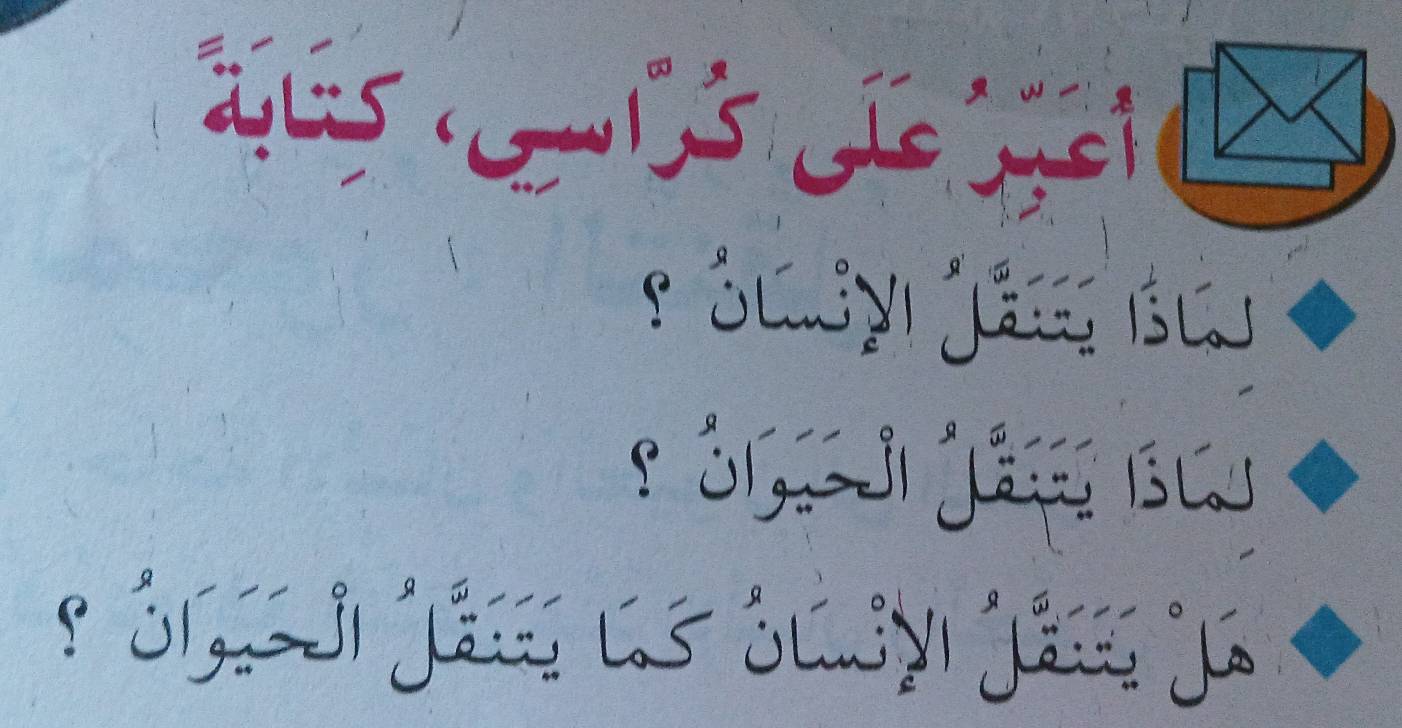 أُعَبِّرُ عَلَى كُرَّاسِي، كِتَابَةً
لِمَاذَا يَتَنَقَّلُ الإِنْسَانُ ؟
لِمَاذَا يَتَنَقَّلُ الْحَيَوَانُ ؟
هَلْ يَتَنَقَّلُ الإِنْسَانُ كَمَا يَتَنَقَّلُ الْحَيَوَانُ ؟